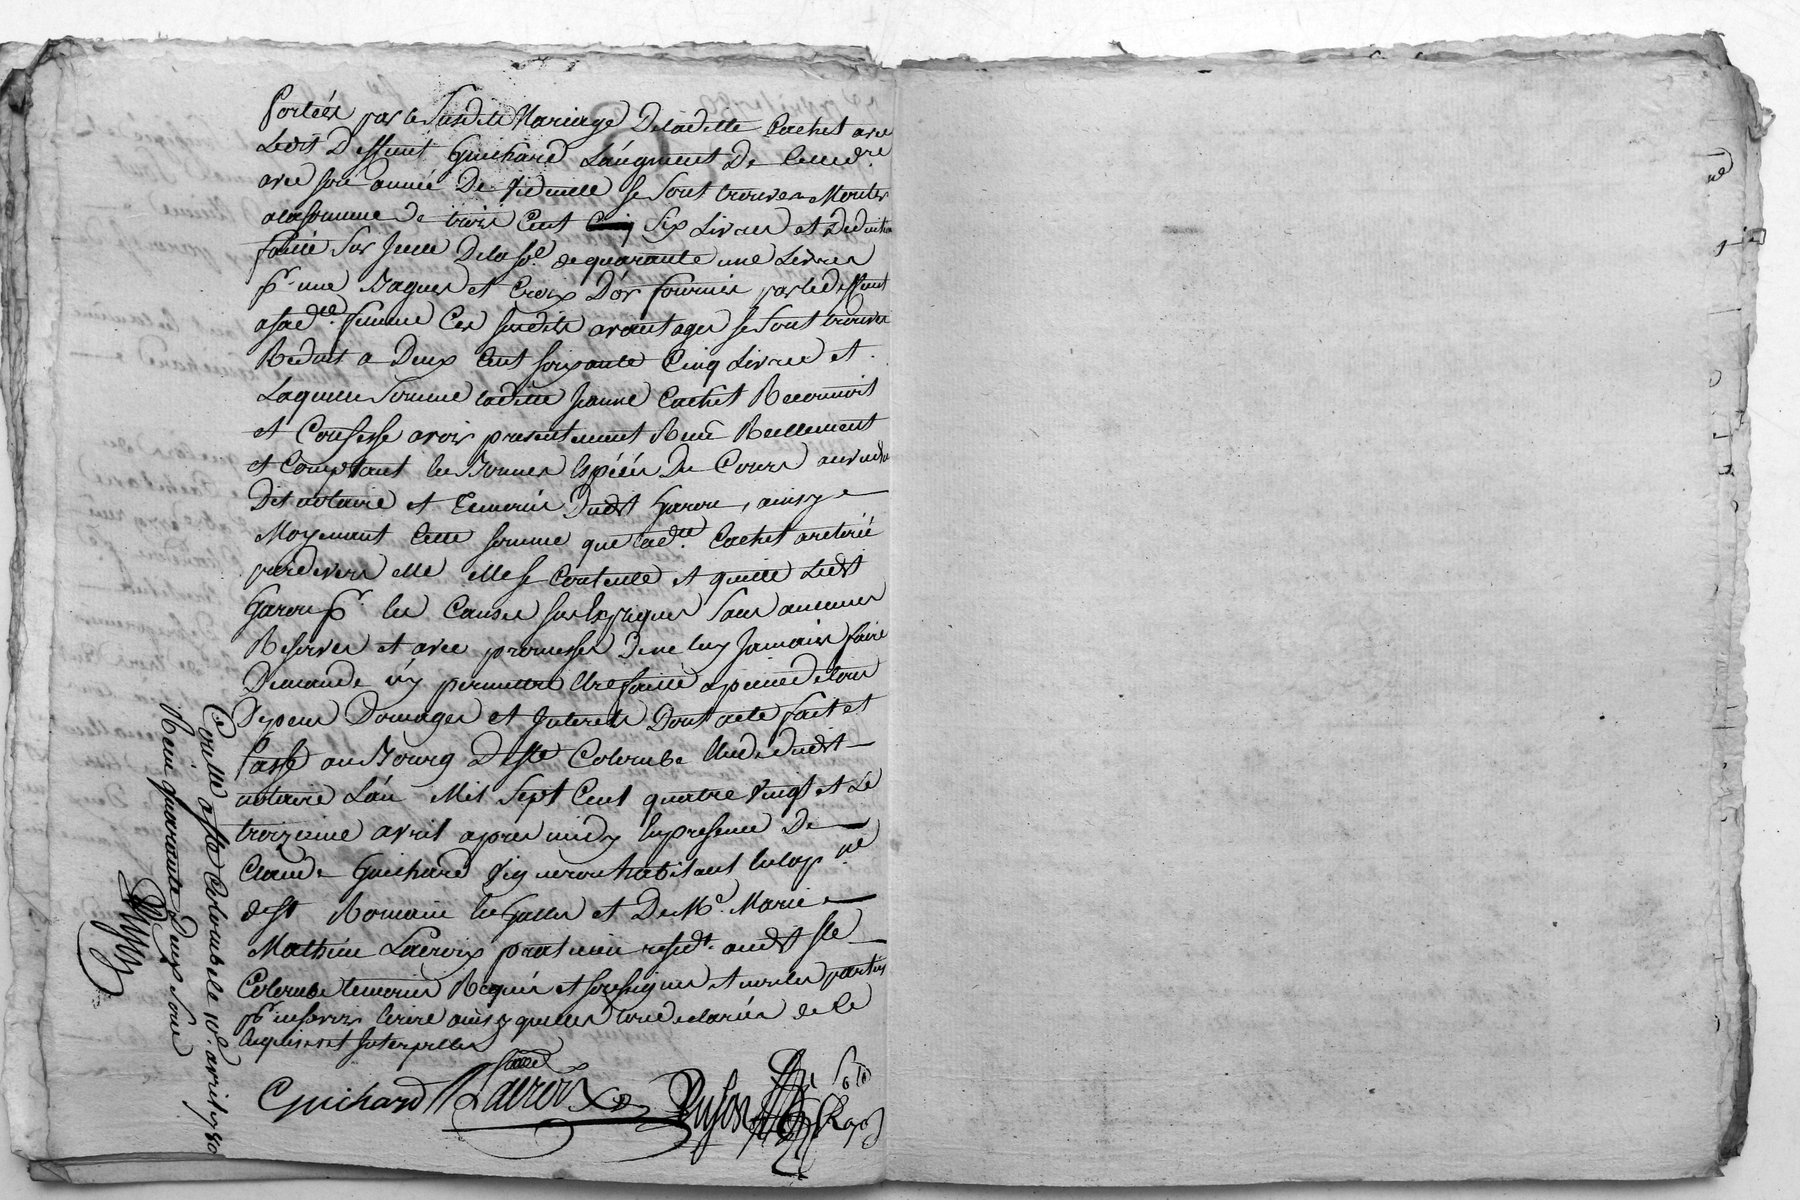 Portées par le Susdit Mariage Deladitte Cachet avec
Ledit Deffunt Guichard L'augment De Ceuxdre
avec son année De Viduitte se sont trouvés Monter
alasomme de trois Cent Six Livres et deduction
faitte Sur Icelle Delase. de quarante une Livres
pr. une Bague et Croix D'or fournie par le deffunt
asade. femme Ces susdits avantages se sont trouvés
Reduit a Deux Cent soixante Cinq Livres et
Laquelle Somme laditte Jeanne Cachet Reconnoit
et Confesse avoir presentement Receu Reellement
et Comptant en Bonnes Espéces Du Cours au vu du
Dit notaire et temoins Dudt Garon, ainsy
Moyenant Cette somme que lade. Cachet a retiré
pardevers elle elle se Contente et quitte Ledt
Garon pr. les Causes sus Expliquées sans aucunes
Reserves et avec promesses De ne luy Jamais faire
Demande n'y permettre Etre faitte a peine de tous
Depens Domages et Interets Dont acte fait et
Passé au Bourg De Ste Colombe Etude dudt
notaire L'an Mil Sept Cent quatre Vingt et Le
troizieme avril apres midy En presence De
Claude Guichard Vigneron habitant En la pse.
de St Romain En Galles et De Me. Marie
Mathieu Lacroix praticien residt. audt Ste
Colombe temoins Requis et soussignés et non les parties
pr. ne savoir Ecrire ainsy quelles ont declarées de Ce
Enquises et Interpellés
Guichard Lacroix Dujon
Conllé a Ste Colombe le 10e. avril 1780
Reçu quarante Deux Sous